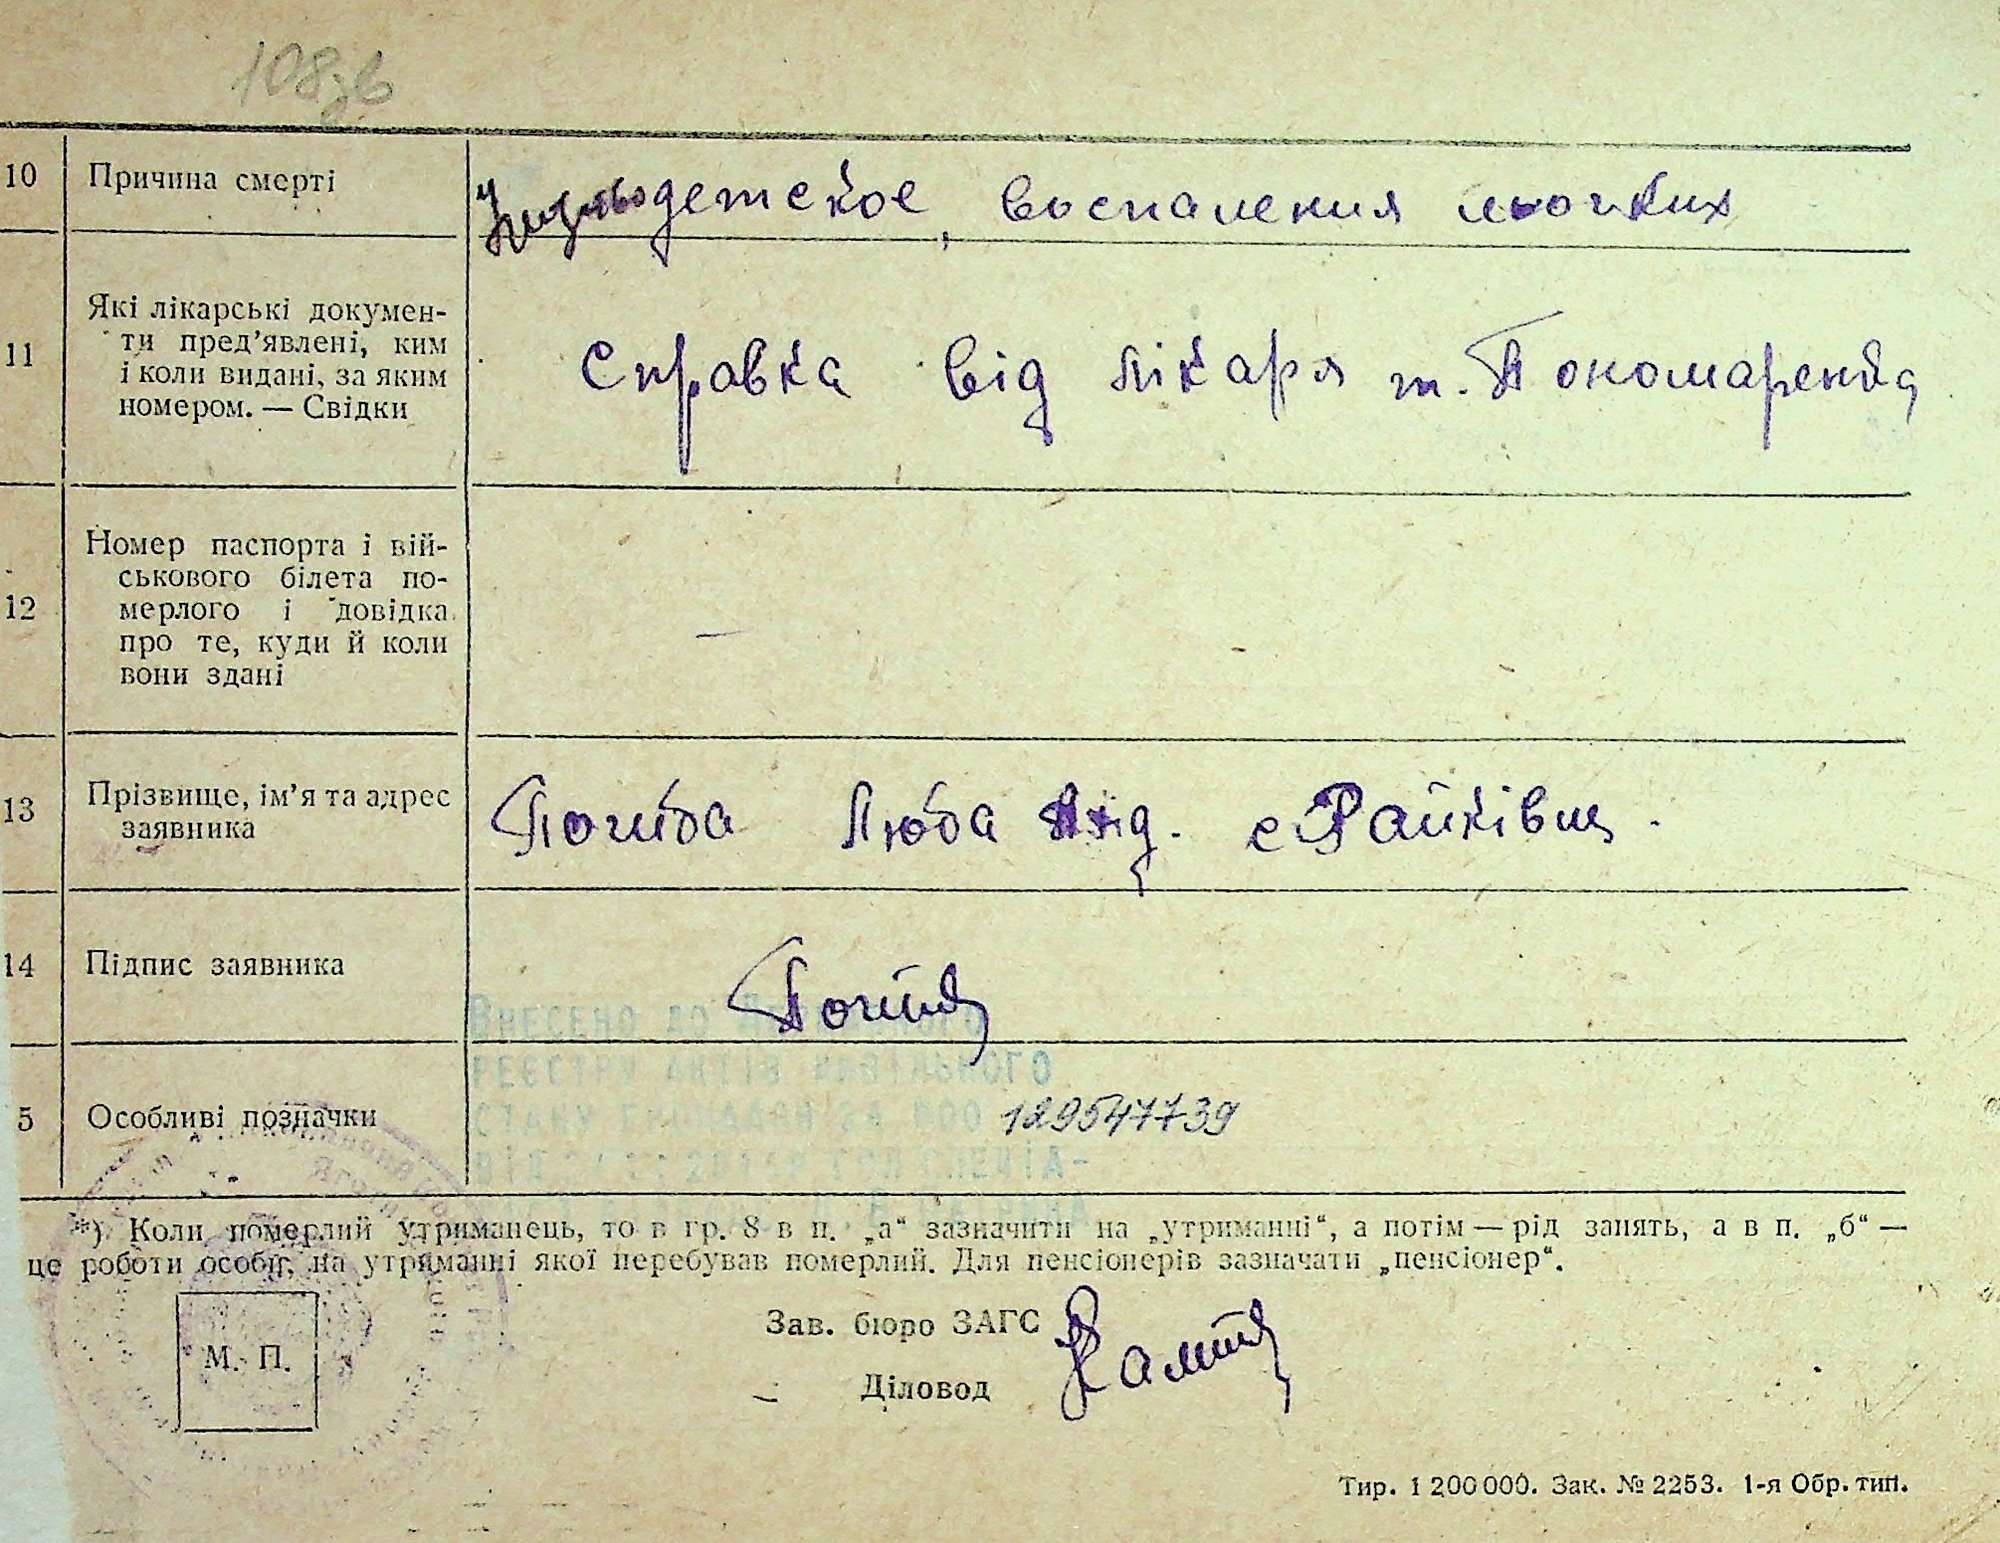 108зв
10 Причина смерті детское, воспаления льочких
11 Які лікарські докумен-
ти пред’явлені, ким
і коли видані, за яким
номером. — Свідки
Справка від лікаря т. Пономаренка
12 Номер паспорта і вій-
ськового білета по-
мерлого і довідка
про те, куди й коли
вони здані
—
13 Прізвище, ім’я та адрес
заявника
Люба с Райківці.
14 Підпис заявника
Внесено до
реєстру актів цивільного
стану громадян за № 129547739
5 Особливі позначки
*) Коли померлий утриманець, то в гр. 8 в п. „а“ зазначити на „утриманні“, а потім — рід занять, а в п. „б“ —
це роботи особи, на утриманні якої перебував померлий. Для пенсіонерів зазначати „пенсіонер“.
М. П.
Зав. бюро ЗАГС
Діловод
Тир. 1 200 000. Зак. № 2253. 1-я Обр. тип.